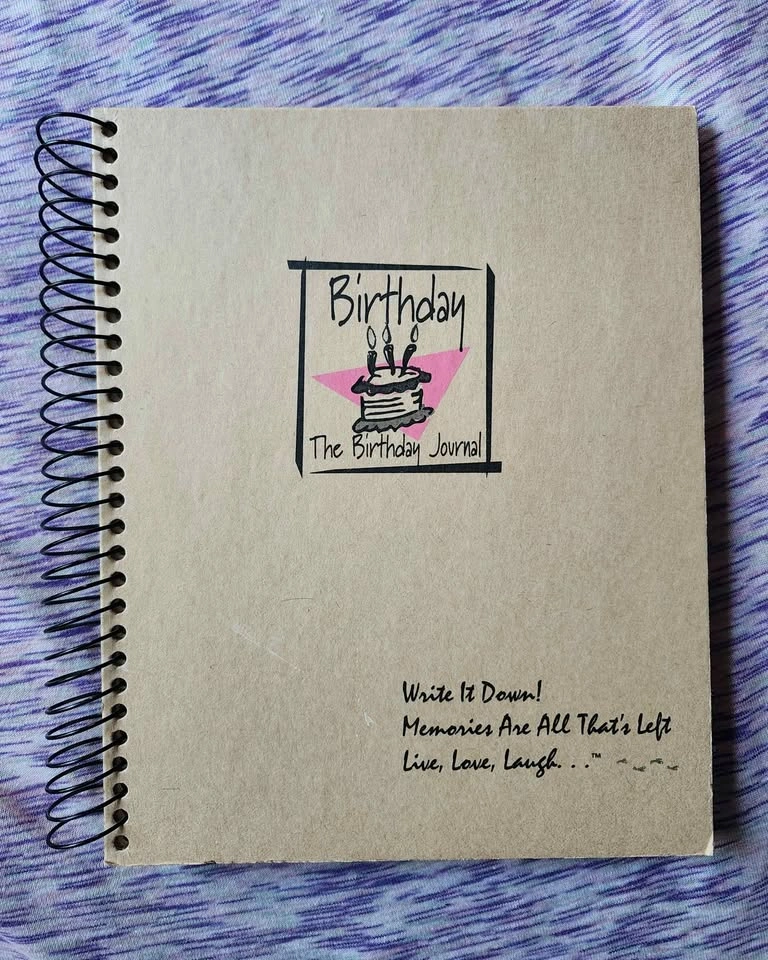 Birthday
The Birthday Journal
Write It Down!
Memories Are All That's Left
Live, Love, Laugh. . .™